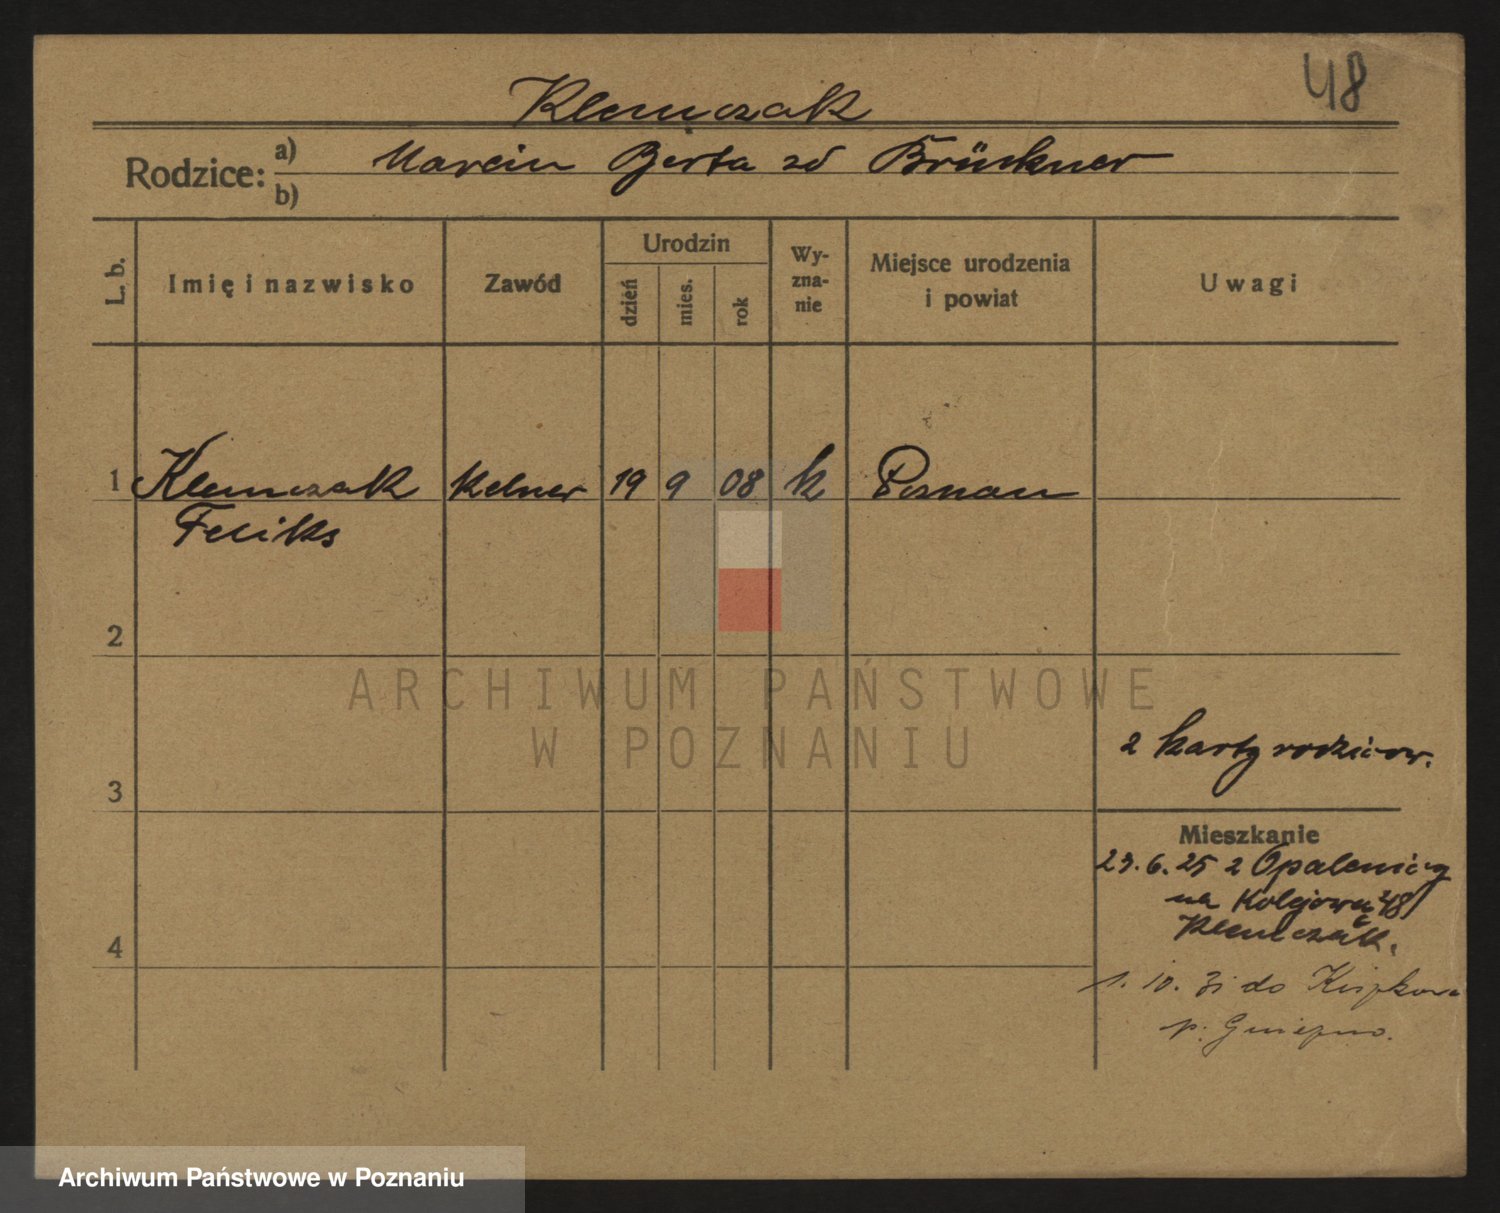 48
Klemczak
Rodzice: a) Marcin Berta zd Brückner
b)
L. b.
Imię i nazwisko
Zawód
Urodzin
dzień
mies.
rok
Wy-
zna-
nie
Miejsce urodzenia
i powiat
Uwagi
1 Klemczak kelner 19 9 08 k Poznan
Feliks
2
ARCHIWUM PAŃSTWOWE
W POZNANIU
z karty rodziców.
3
Mieszkanie
23. 6. 25 z Opalenicy
na Kolejową 48
Klemczak.
4
1. 10. 31 do
p. Gniezno.
Archiwum Państwowe w Poznaniu